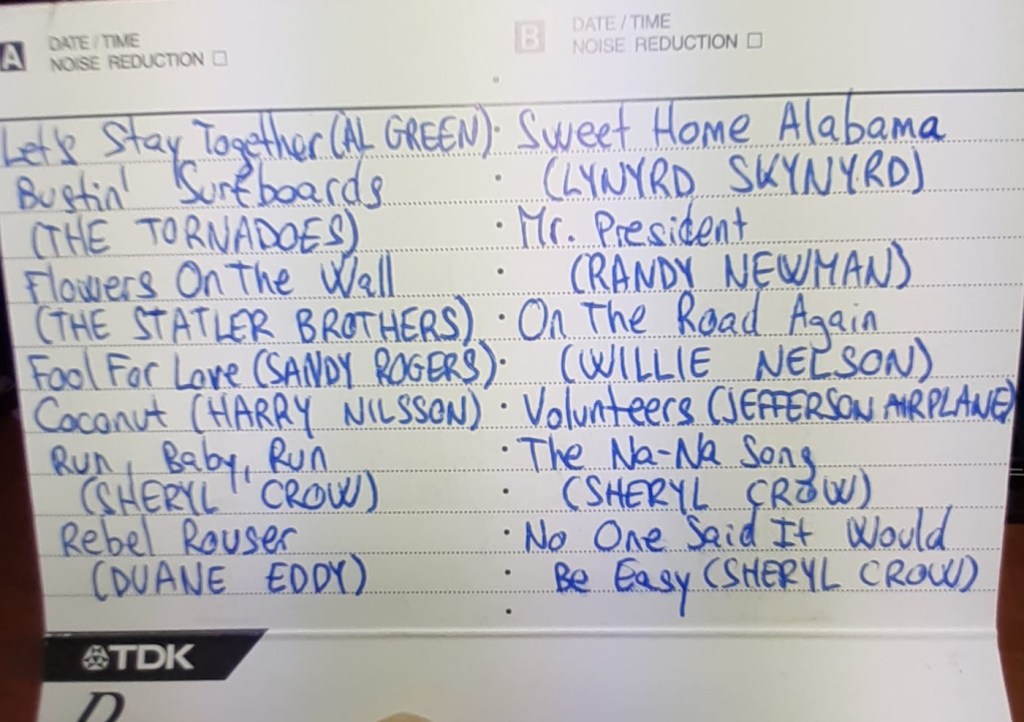 A DATE / TIME
NOISE REDUCTION
Let's Stay Together (AL GREEN)
Bustin' Surfboards
(THE TORNADOES)
Flowers On The Wall
(THE STATLER BROTHERS)
Fool For Love (SANDY ROGERS)
Coconut (HARRY NILSSON)
Run, Baby, Run
(SHERYL CROW)
Rebel Rouser
(DUANE EDDY)
B DATE / TIME
NOISE REDUCTION
Sweet Home Alabama
(LYNYRD SKYNYRD)
Mr. President
(RANDY NEWMAN)
On The Road Again
(WILLIE NELSON)
Volunteers (JEFFERSON AIRPLANE)
The Na-Na Song
(SHERYL CROW)
No One Said It Would
Be Easy (SHERYL CROW)
TDK
D